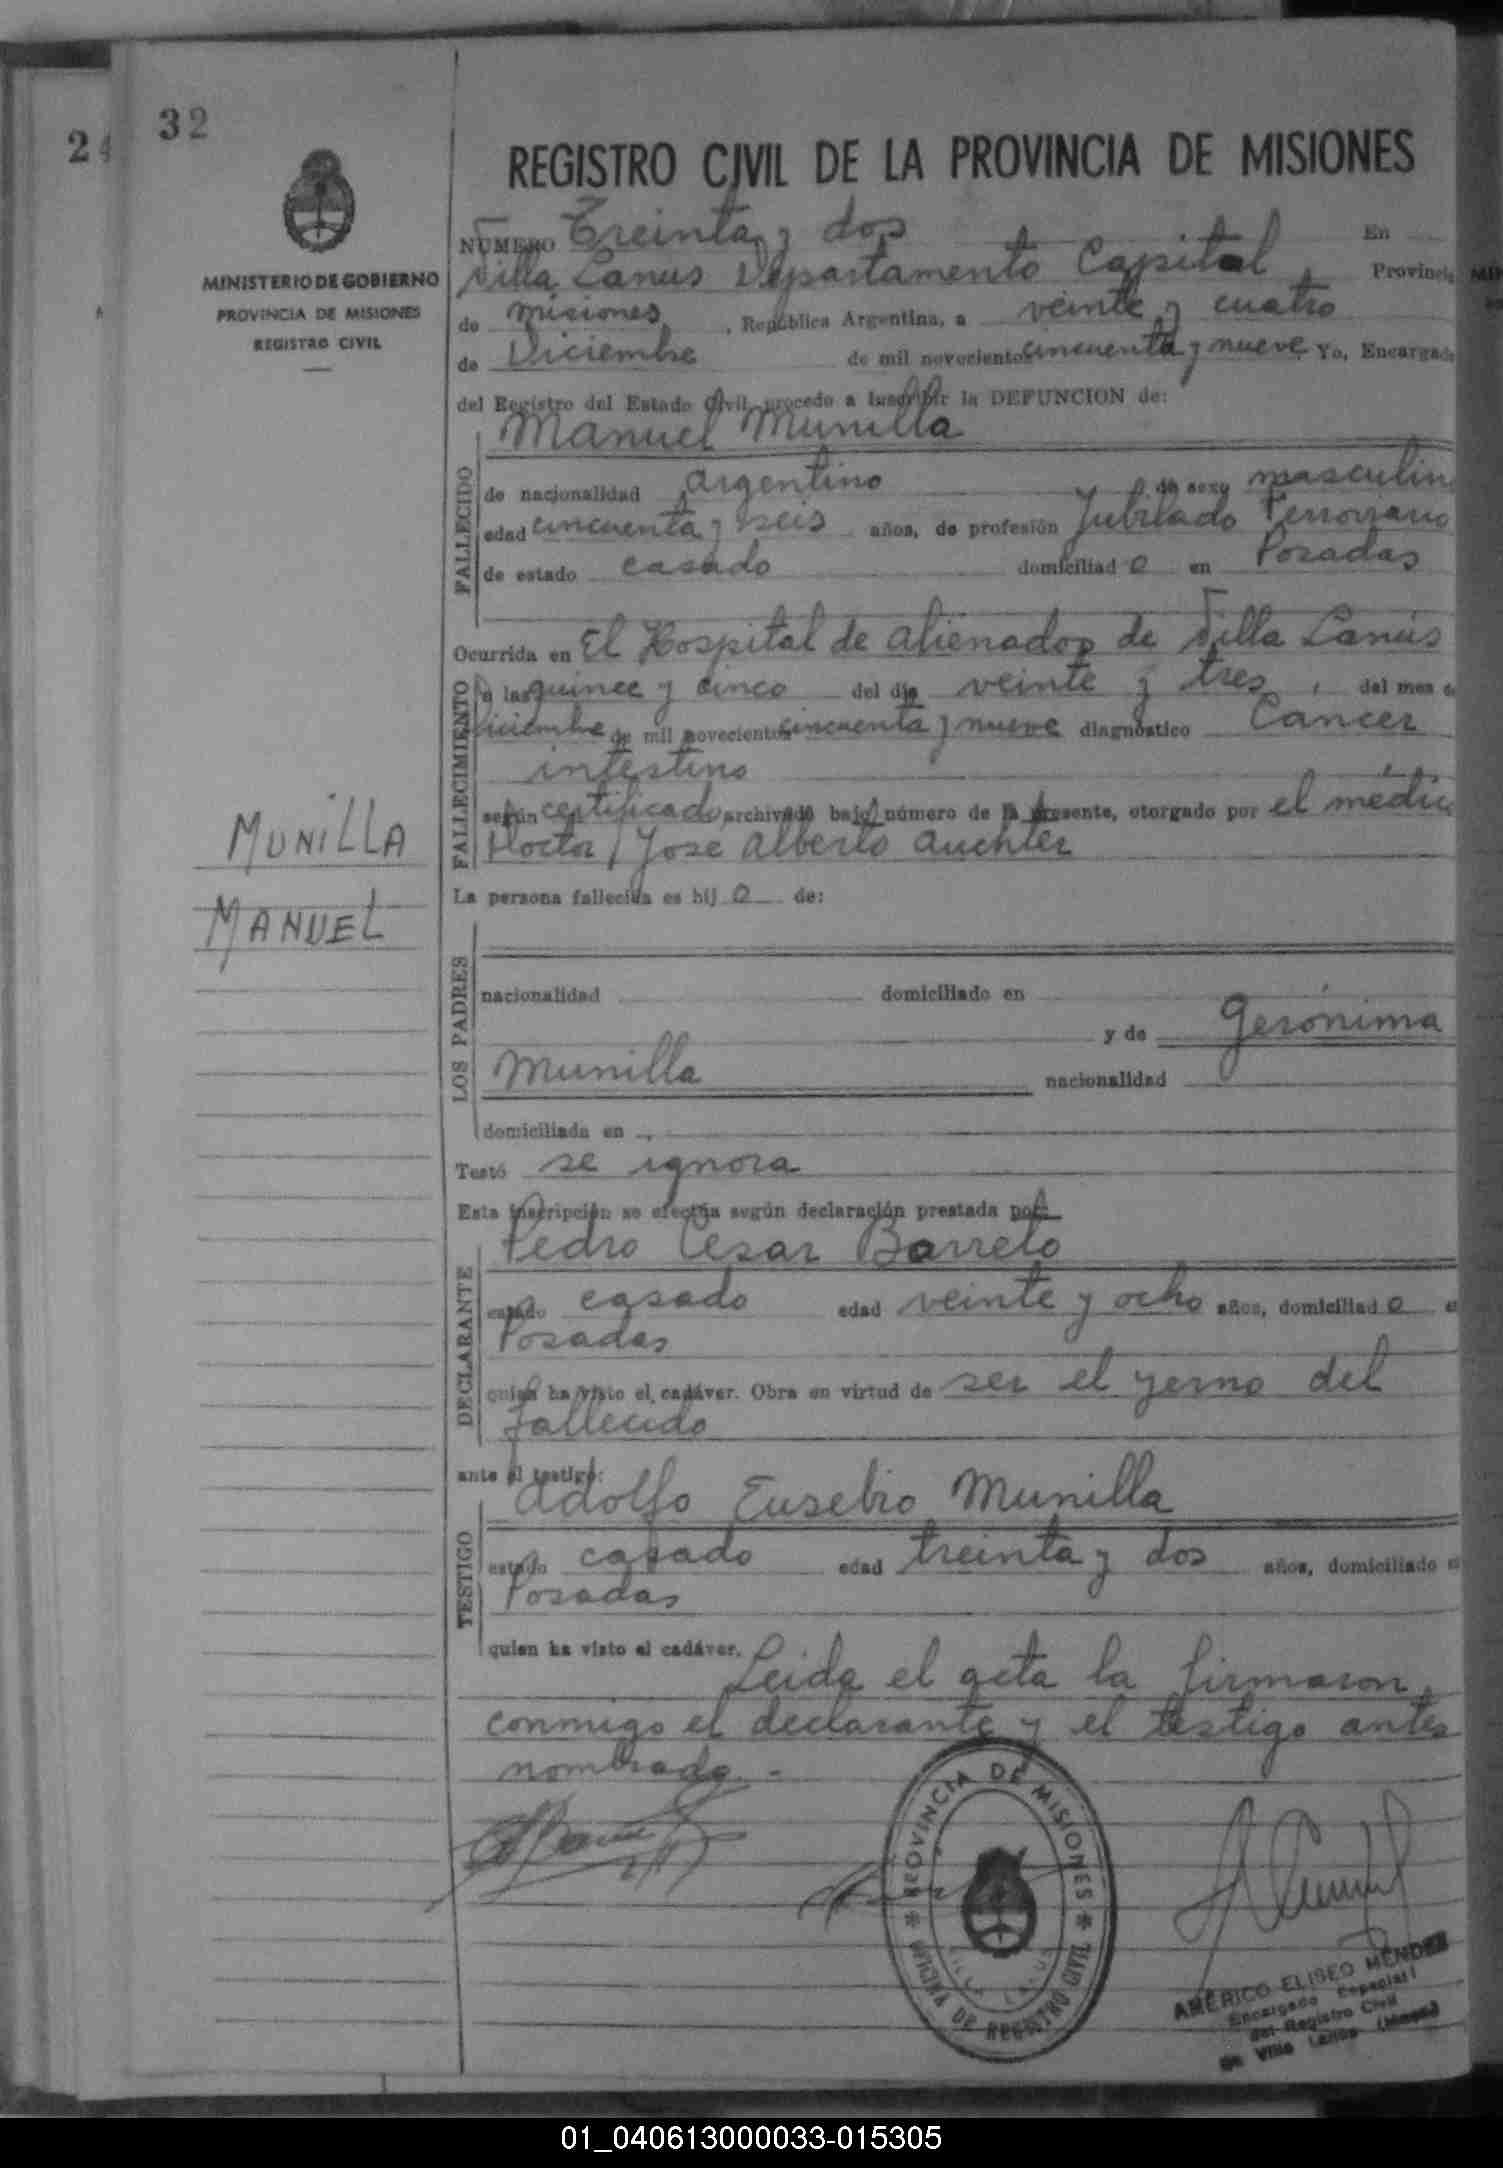 24
32
MINISTERIO DE GOBIERNO
PROVINCIA DE MISIONES
REGISTRO CIVIL
MUNILLA
MANUEL
REGISTRO CIVIL DE LA PROVINCIA DE MISIONES
NÚMERO Treinta y dos En
Villa Lanus Departamento Capital Provincia
de misiones, República Argentina, a veinte y cuatro
de Diciembre de mil novecientos cincuenta y nueve Yo, Encargado
del Registro del Estado Civil, procedo a inscribir la DEFUNCION de:
Manuel Munilla
FALLECIDO
de nacionalidad argentino de sexo masculino
edad cincuenta y seis años, de profesión Jubilado Ferroviario
de estado casado domiciliad o en Posadas
Ocurrida en El Hospital de alienados de Villa Lanús
FALLECIMIENTO
a las quince y cinco del día veinte y tres, del mes de
Diciembre de mil novecientos cincuenta y nueve diagnóstico Cancer
intestino
según certificado archivado bajo número de la presente, otorgado por el médico
Doctor Jose Alberto Auchter
La persona fallecida es hij o de:
LOS PADRES
nacionalidad domiciliado en
y de Gerónima
Munilla nacionalidad
domiciliada en
Testó se ignora
Esta inscripción se efectúa según declaración prestada por:
Pedro Cesar Barreto
DECLARANTE
estado casado edad veinte y ocho años, domiciliad o e
Posadas
quien ha visto el cadáver. Obra en virtud de ser el yerno del
fallecido
ante el testigo:
Adolfo Eusebio Munilla
TESTIGO
estado casado edad treinta y dos años, domiciliado e
Posadas
quien ha visto el cadáver.
Leida el acta la firmaron
conmigo el declarante y el testigo antes
nombrado.-
PROVINCIA DE MISIONES
OFICINA DE REGISTRO CIVIL
VILLA LANUS
AMÉRICO ELISEO MÉNDEZ
Encargado Especial
del Registro Civil
de Villa Lanús
01_040613000033-015305